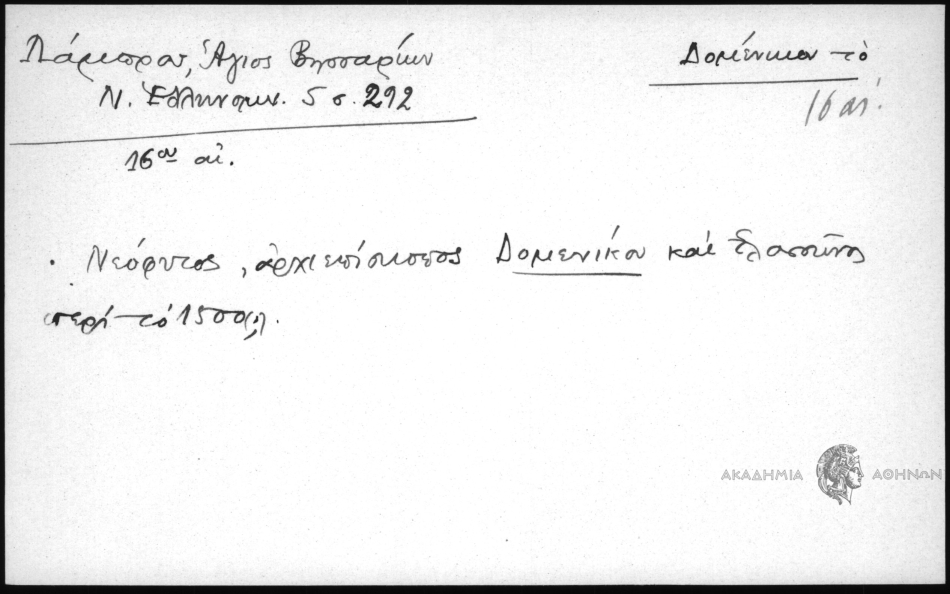 Λάμπρου, Ἅγιος Βησσαρίων
Ν. Ἑλληνομν. 5 σ. 292
16ου αἰ.
Δομένικον τὸ
16 αἰ.
· Νεόφυτος, ἀρχιεπίσκοπος Δομενίκου καὶ Ἐλασσῶνος
περὶ τὸ 1500(;).
ΑΚΑΔΗΜΙΑ ΑΘΗΝΩΝ